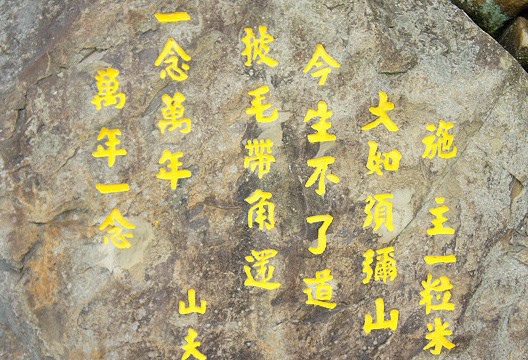 施主一粒米
大如須彌山
今生不了道
披毛帶角還
一念萬年
萬年一念
山夫